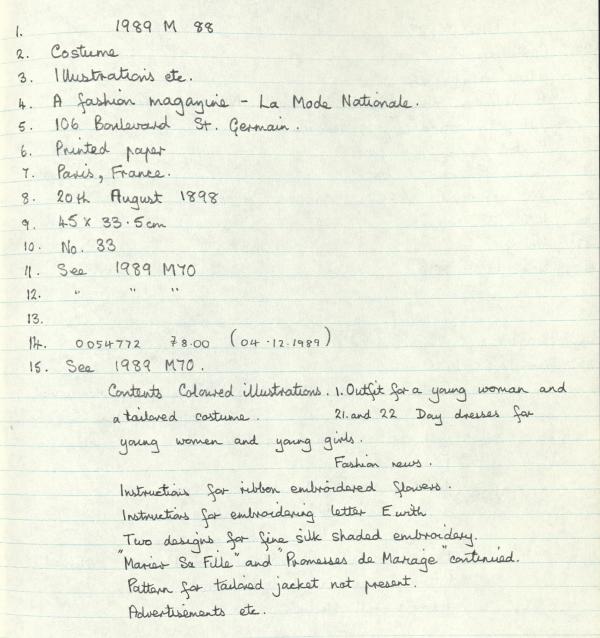 1. 1989 M 88
2. Costume
3. Illustrations etc.
4. A fashion magazine - La Mode Nationale.
5. 106 Boulevard St. Germain.
6. Printed paper
7. Paris, France.
8. 20th August 1898
9. 45 x 33.5cm
10. No. 33
11. See 1989 M70
12. " " "
13.
14. 0054772 78.00 (04.12.1989)
15. See 1989 M70.
Contents Coloured illustrations. 1. Outfit for a young woman and
a tailored costume. 21. and 22 Day dresses for
young women and young girls.
Fashion news.
Instructions for ribbon embroidered flowers.
Instructions for embroidering letter E with
Two designs for fine silk shaded embroidery.
"Marier Sa Fille" and "Promesses de Marage" continued.
Pattern for tailored jacket not present.
Advertisements etc.